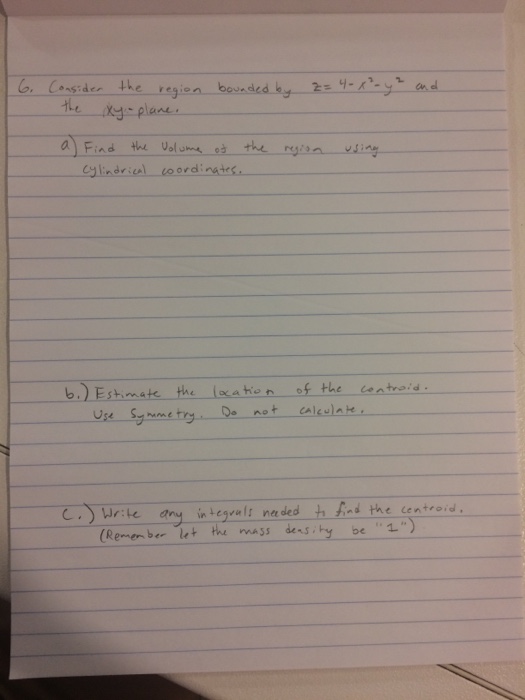 6. Consider the region bounded by z = 4-x²-y² and
the xy-plane.
a) Find the Volume of the region using
cylindrical coordinates.
b.) Estimate the location of the centroid.
Use Symmetry. Do not calculate.
C.) Write any integrals needed to find the centroid.
(Remember let the mass density be "1")